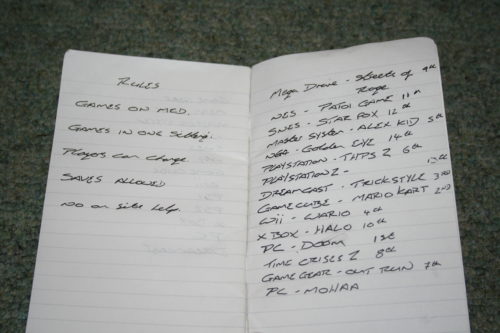 RULES
GAMES ON MED.
GAMES IN ONE Sitting.
Players can change
SAVES ALLOWED
NO on site help.
Mega Drive - Streets of 9th
Rage
NES - PATON GAME 11th
SNES - STAR FOX 12th
Master System - ALEX KID 5th
N64 - Golden EYE 14th
PLAYSTATION - THPS 2 6th
PLAYSTATION 2 -
DREAMCAST - TRICKSTYLE 13th
GAMECUBE - MARIO KART 3rd
Wii - WARIO 4th 2nd
X BOX - HALO 10th
PC - DOOM 1st
TIME CRISES 2 8th
GAME GEAR - OUT RUN 7th
PC - MOHAA